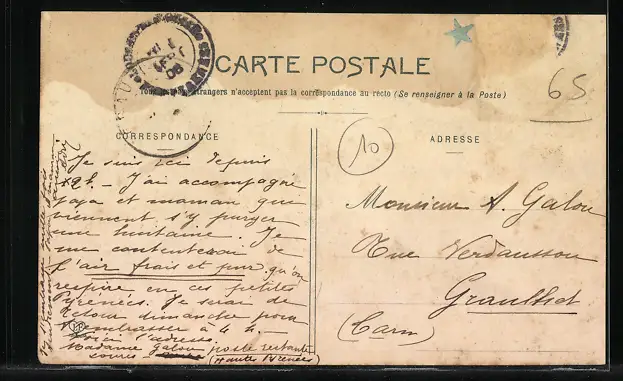 CARTE POSTALE
Tous les pays étrangers n'acceptent pas la correspondance au recto (Se renseigner à la Poste)
65
CORRESPONDANCE
Je suis ici depuis
J'ai accompagné
papa et maman qui
viennent s'y purger
une huitaine. Je
me contenterai de
l'air frais et pur, qu'on
respire en ces petites
Pyrénées. Je serai de
retour dimanche pour
t'embrasser à 4 h.
Voici l'adresse
Madame Galou poste restante
(Hautes Pyrénées)
10
ADRESSE
Monsieur A. Galou
Rue Verdaussou
Graulhet
(Tarn)